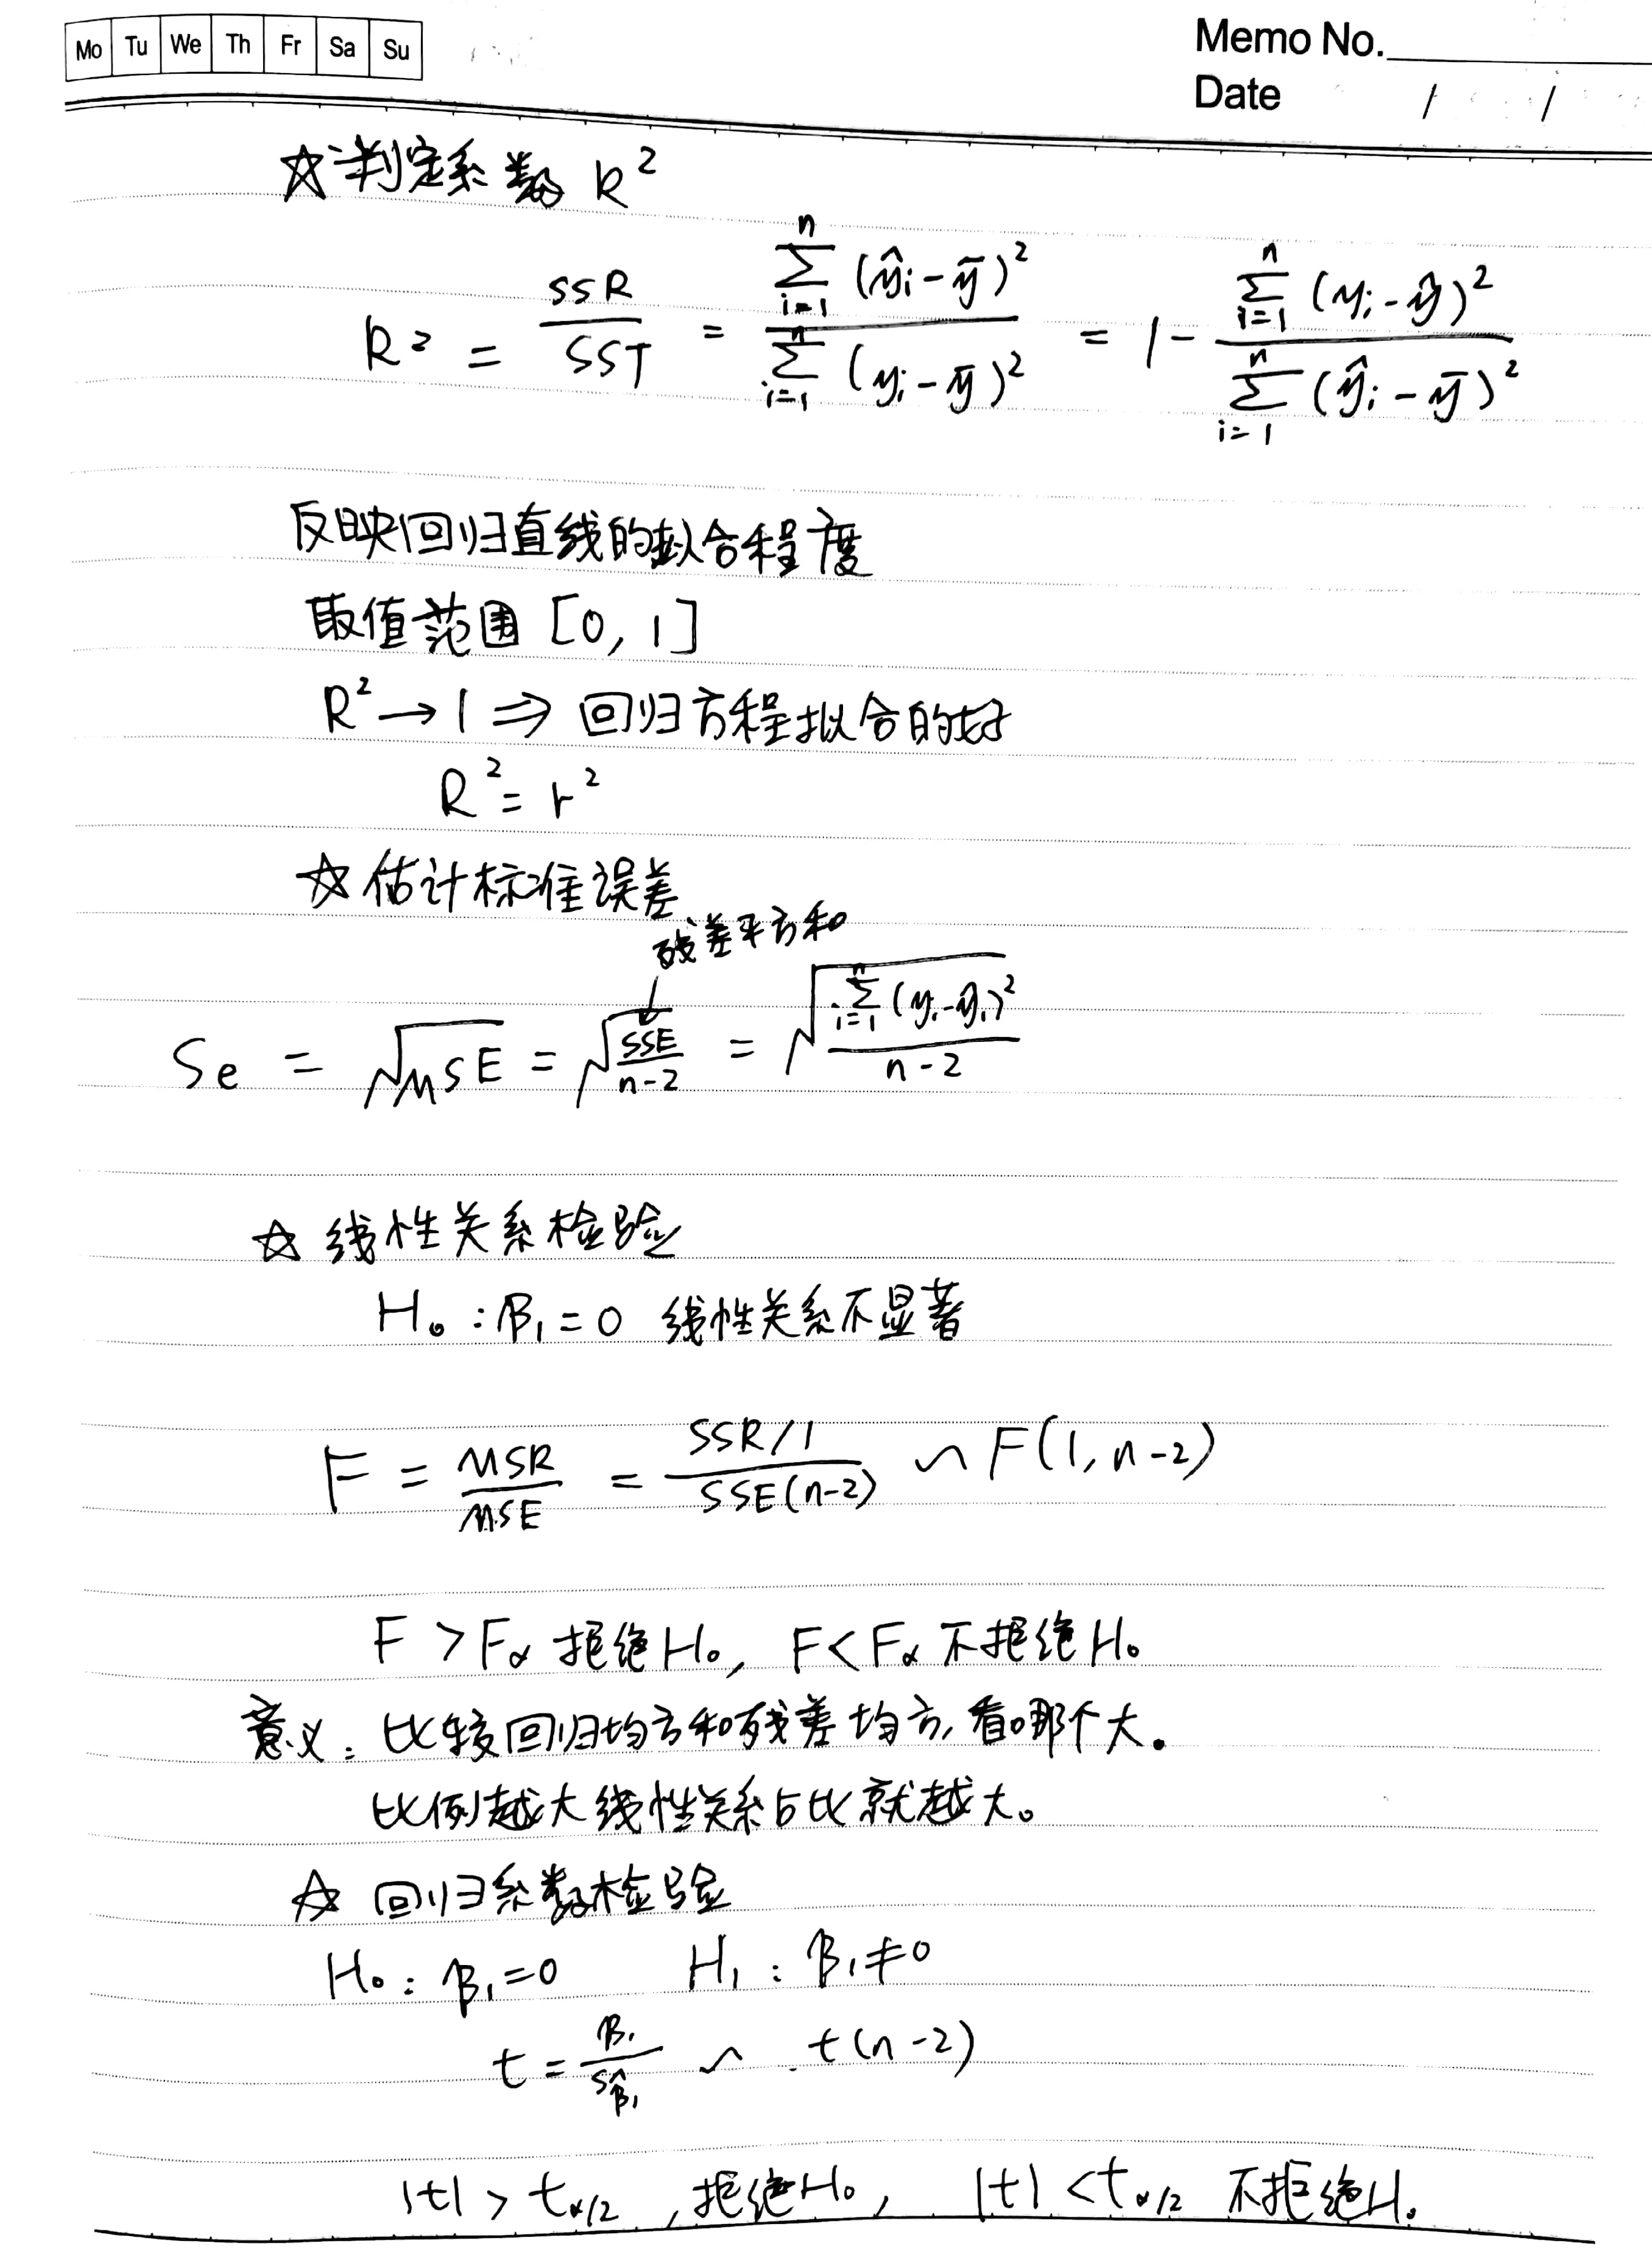 Mo Tu We Th Fr Sa Su
Memo No.
Date / /
☆判定系数 R²
R² = SSR/SST = ∑ⁿᵢ₌₁(ŷᵢ-ȳ)² / ∑ⁿᵢ₌₁(yᵢ-ȳ)² = 1 - ∑ⁿᵢ₌₁(yᵢ-ŷ)² / ∑ⁿᵢ₌₁(ŷᵢ-ȳ)²
反映回归直线的拟合程度
取值范围 [0, 1]
R² → 1 ⇒ 回归方程拟合的好
R² = r²
☆ 估计标准误差
残差平方和
Se = √MSE = √(SSE/(n-2)) = √(∑ⁿᵢ₌₁(yᵢ-ŷᵢ)²/(n-2))
☆ 线性关系检验
H₀ : β₁ = 0 线性关系不显著
F = MSR/MSE = (SSR/1)/(SSE(n-2)) ∽ F(1, n-2)
F > Fα 拒绝H₀, F < Fα 不拒绝H₀
意义: 比较回归均方和残差均方, 看哪个大。
比例越大线性关系占比就越大。
☆ 回归系数检验
H₀ : β₁=0 H₁ : β₁≠0
t = β₁/Sβ̂₁ ∽ t(n-2)
|t| > tα/2 , 拒绝H₀, |t| < tα/2 不拒绝H₀